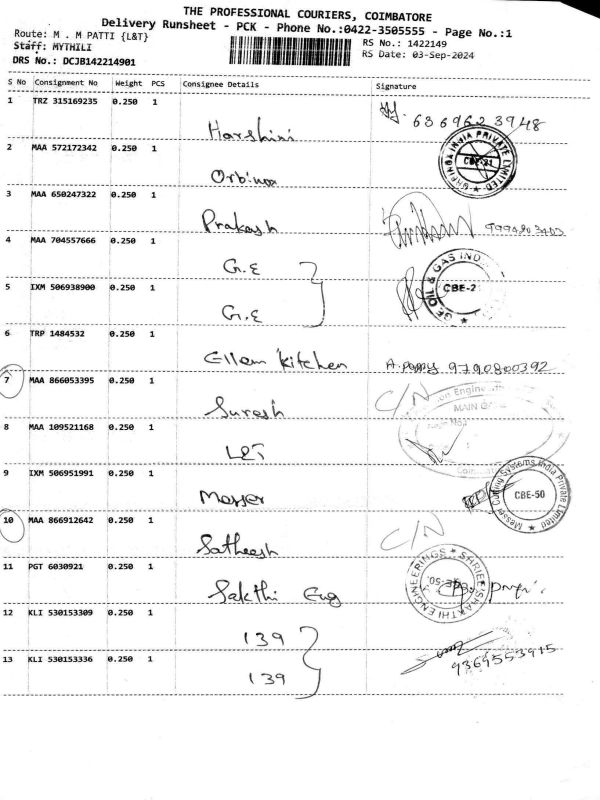 THE PROFESSIONAL COURIERS, COIMBATORE
Delivery Runsheet - PCK - Phone No.:0422-3505555 - Page No.:1
Route: M . M PATTI {L&T}
RS No.: 1422149
Staff: MYTHILI
RS Date: 03-Sep-2024
DRS No.: DCJB142214901
S No Consignment No Weight PCS Consignee Details Signature
1 TRZ 315169235 0.250 1 Harshini 6369623948
2 MAA 572172342 0.250 1 Orbinox INDIA PRIVATE LIMITED
3 MAA 650247322 0.250 1 Prakash
4 MAA 704557666 0.250 1 G.E OIL & GAS IND
5 IXM 506938900 0.250 1 G.E CBE-2
6 TRP 1484532 0.250 1 Ellam kitchen 9790800392
7 MAA 866053395 0.250 1 Suresh C/N
8 MAA 109521168 0.250 1 L&T MAIN GATE
9 IXM 506951991 0.250 1 Messer Messer Cutting Systems India Private Limited CBE-50
10 MAA 866912642 0.250 1 Satheesh C/N
11 PGT 6030921 0.250 1 Sakthi Eng SHREE SHAKTHI ENGINEERINGS
12 KLI 530153309 0.250 1 139
13 KLI 530153336 0.250 1 139 9369553915